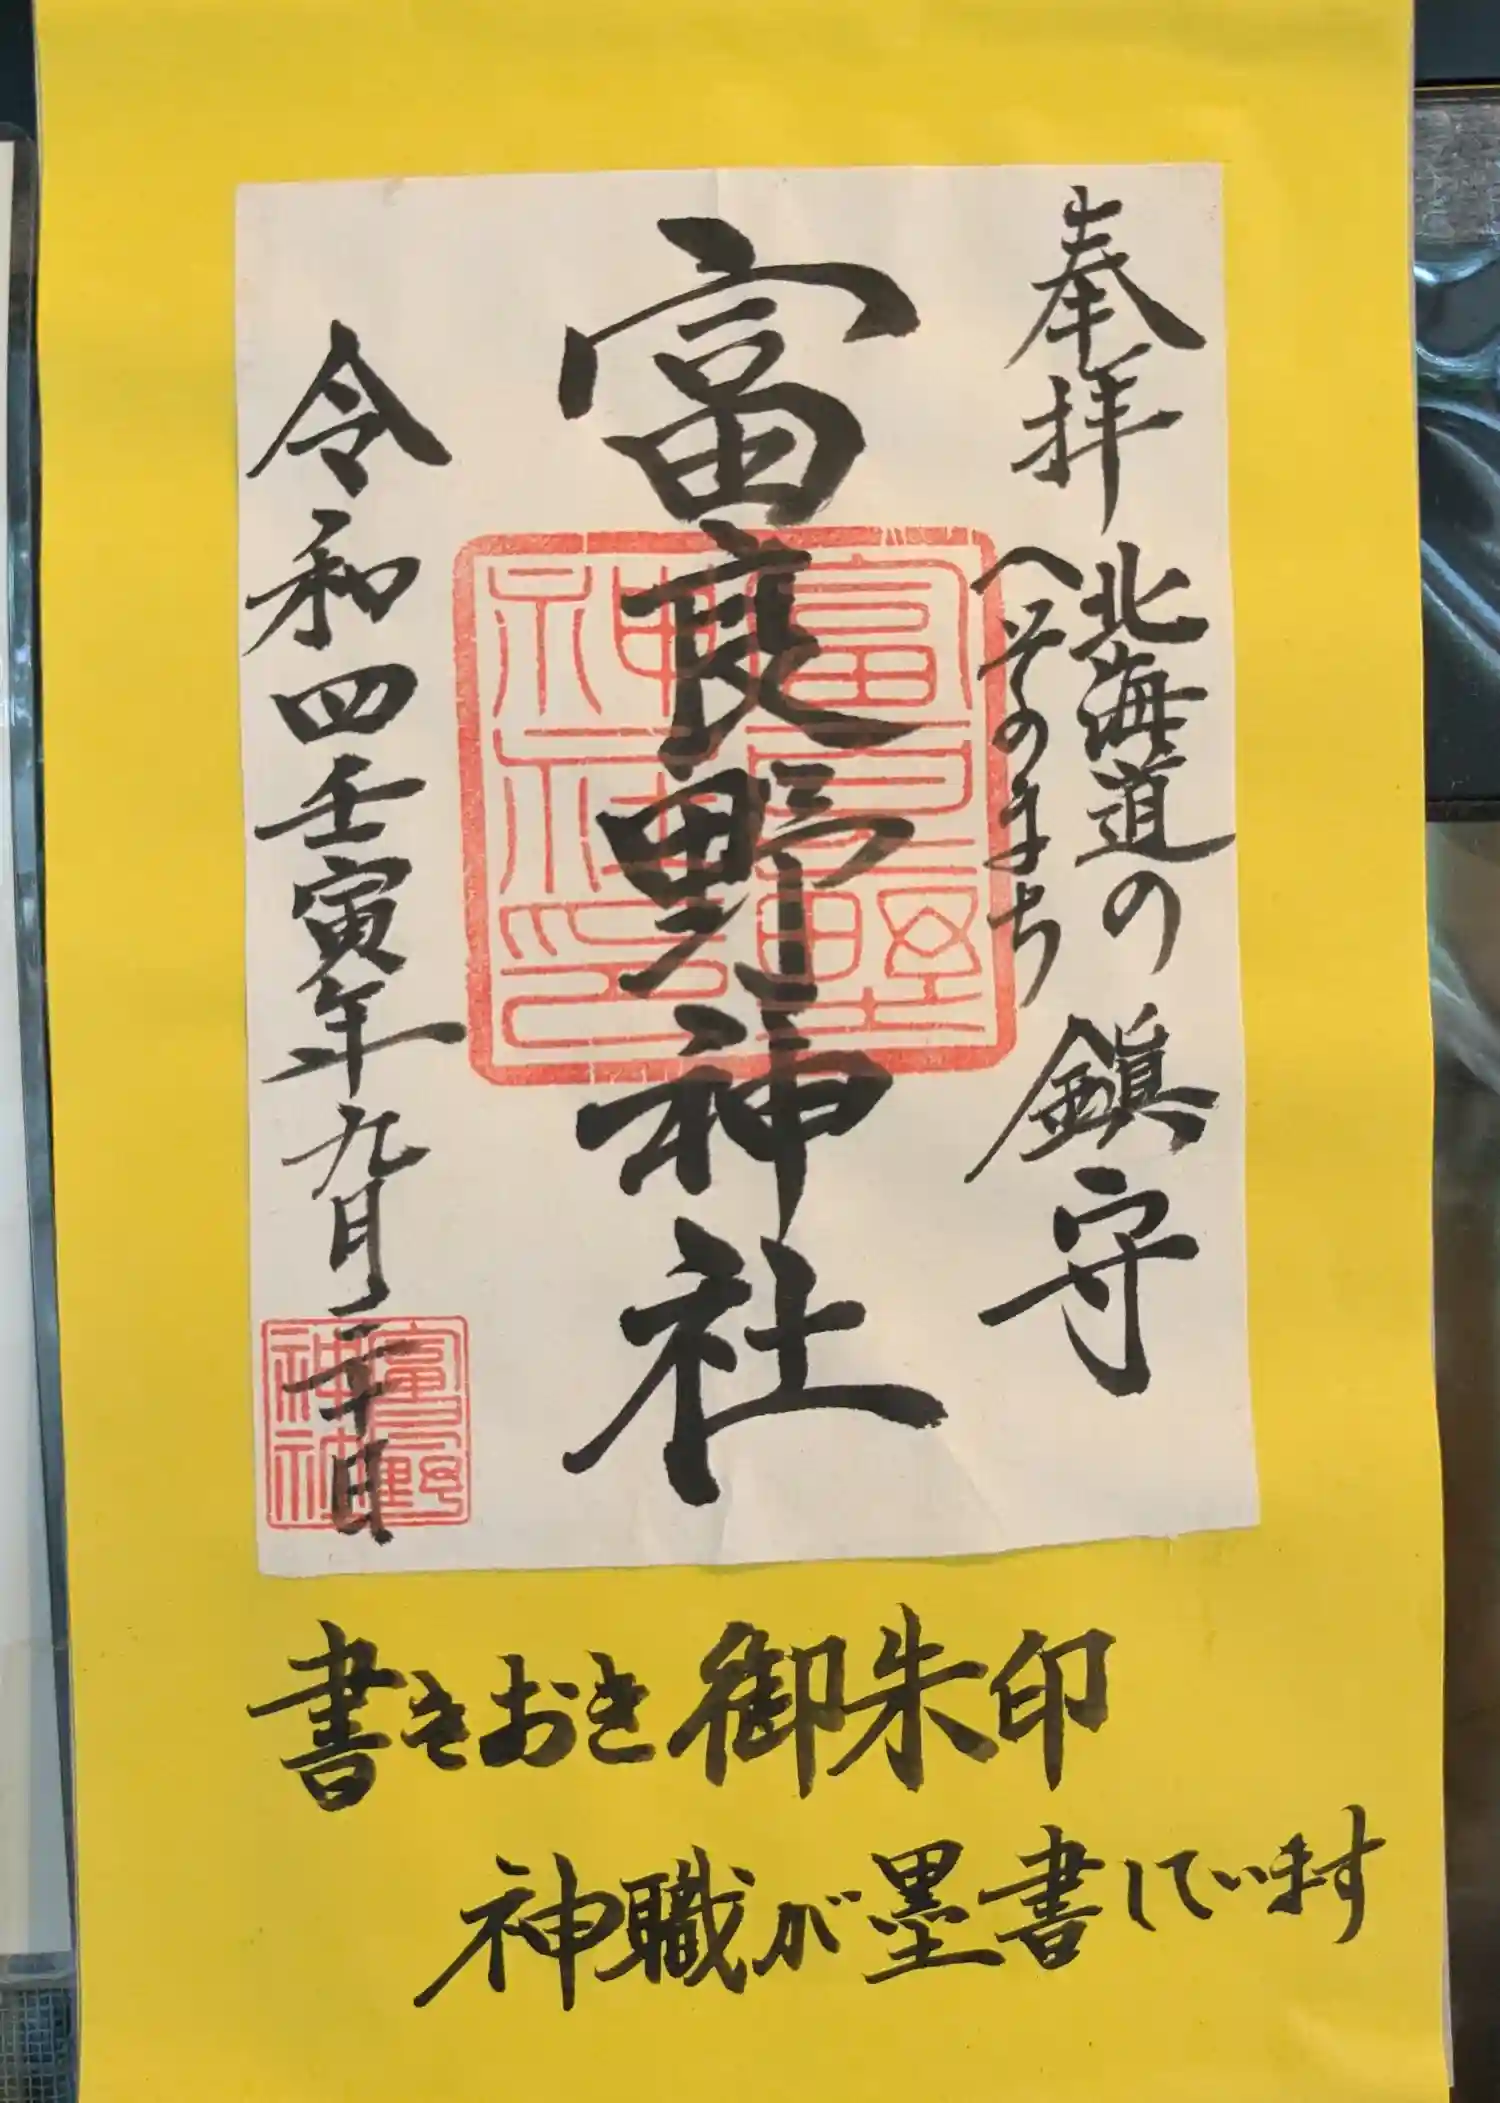 奉拝
北海道の
へそのまち
鎮守
富良野神社
令和四壬寅年九月二十日
書きおき御朱印
神職が墨書しています